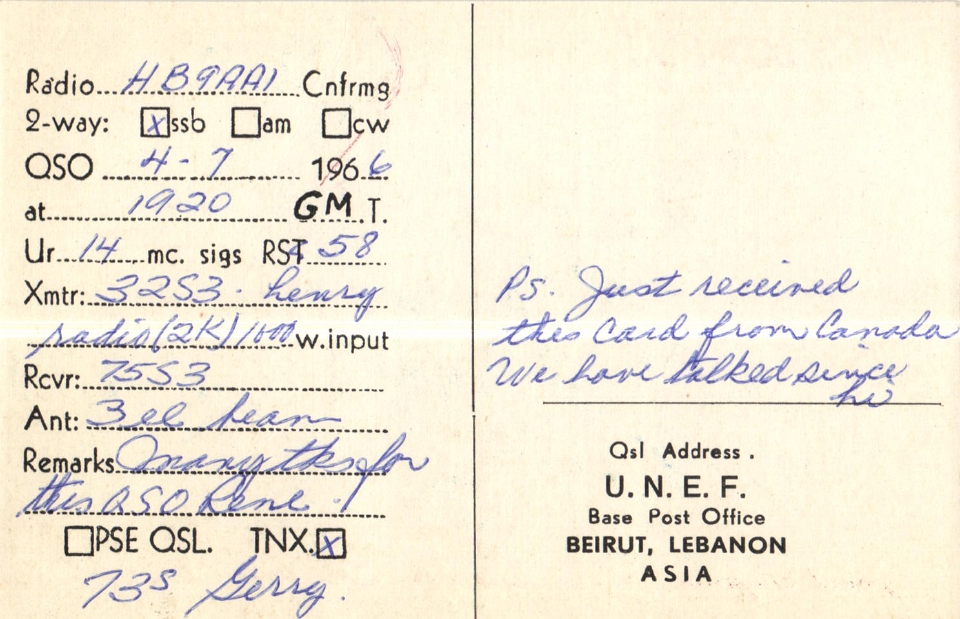 Radio HB9AAI Cnfrmg
2-way: [x] ssb [ ] am [ ] cw
QSO 4-7 1966
at 1920 GMT.
Ur 14 mc. sigs RST 58
Xmtr: 32S3 - henry
radio (2K) 1000 w. input
Rcvr: 75S3
Ant: 3 el beam
Remarks Many tks for
this QSO Rene.
[ ] PSE QSL. TNX. [x]
73s Gerry.
Ps. Just received
this card from Canada
We have talked since
hi
Qsl Address.
U. N. E. F.
Base Post Office
BEIRUT, LEBANON
ASIA